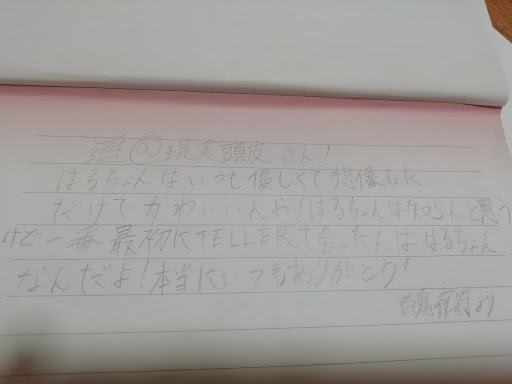 遥@現実頭皮 さん!
はるちょんはいつも優しくて想像した
だけでかわいいんや!はるちょんは知らんと思う
けど一番最初にTELLERで会ったんは、はるちょん
なんだよ!本当にいつもありがとう!
百鬼夜行より